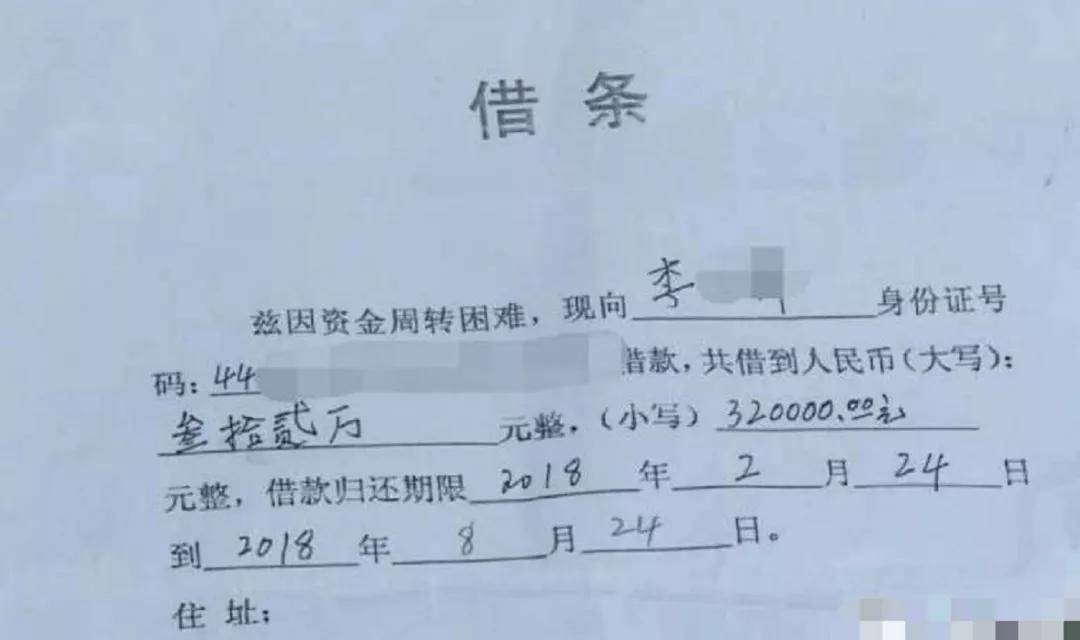 借条
兹因资金周转困难，现向李 身份证号
码：44 借款，共借到人民币（大写）：
叁拾贰万元整，（小写）320000.00元
元整，借款归还期限2018年2月24日
到2018年8月24日。
住 址：